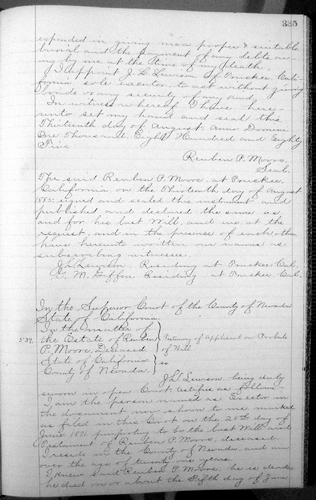 335
expended in giving me a proper & suitable
burial and the payment of any debts ow-
ing by me at the time of my death.
I appoint J. L. Lewson of Truckee Cali-
fornia sole executor to act without giving
bonds or any security
In witness whereof I have here-
unto set my hand and seal this
Thirteenth day of August Anno Domini
One Thousand Eight Hundred and Eighty
Five
Reuben P. Moore,
Seal.
The said Reuben P. Moore at Truckee
California on the Thirteenth day of August
1885 signed and sealed this instrument and
published and declared the same as
and for his last Will, and we at his
request, and in the presence of each other
have hereunto written our names as
subscribing witnesses.
Residing at Truckee Cal.
Residing at Truckee Cal.
In the Superior Court of the County of Nevada
State of California.
In the matter of
the Estate of Reuben
P. Moore, Deceased
State of California
County of Nevada.
Testimony of Applicant on Probate
of Will
ss
J. L. Lewson being duly
sworn in open Court, testifies as follows:
I am the person named as Executor in
the document now shown to me marked
as filed in this Court on the 20th day of
June 1891 purporting to be the last Will and
Testament of Reuben P. Moore, deceased.
I reside in the County of Nevada, and am
over the age of twenty one years.
I knew said Reuben P. Moore, he is dead
he died on or about the fifth day of June